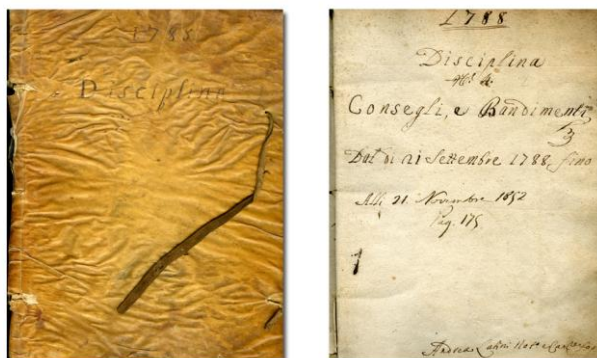 1788
Disciplina
1788
Disciplina
Consegli, e Bandimenti
Dal dì 21 Settembre 1788, fino
Alli 21. Novembre 1852
Pag. 175
Andrea